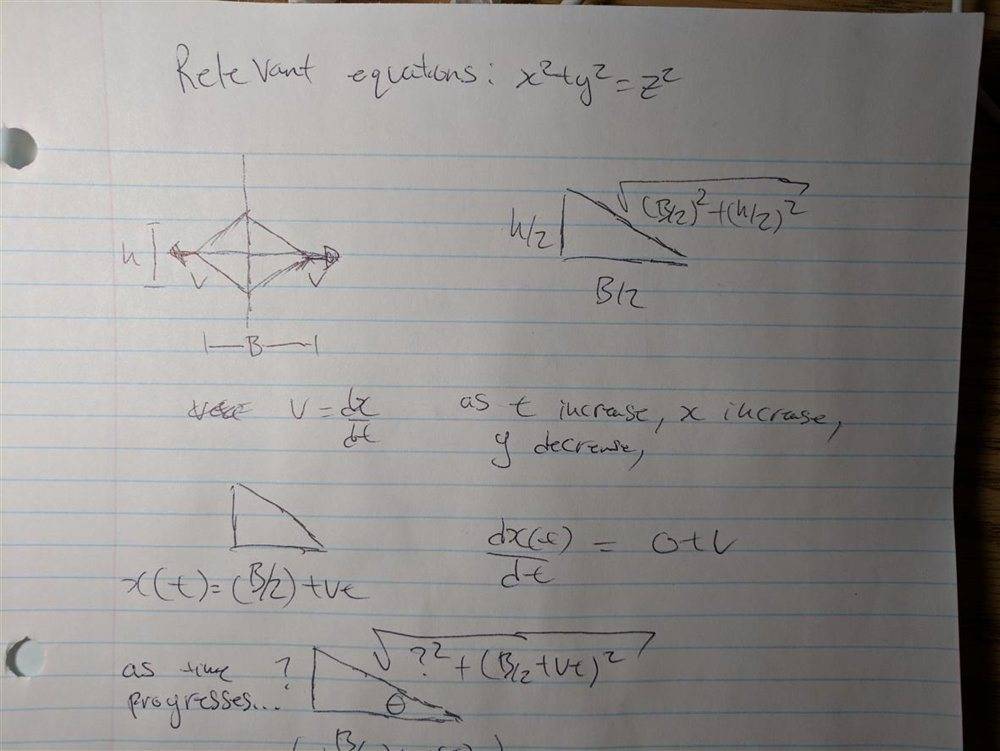 Relevant equations: x²+y²=z²
h
V V
├─B─┤
h/2
√(B/2)²+(h/2)²
B/2
V = dx/dt as t increase, x increase,
y decrease,
x(t)=(B/2)+Vt
dx(t)/dt = 0+V
as time
progresses...
?
√?²+(B/2+Vt)²
θ